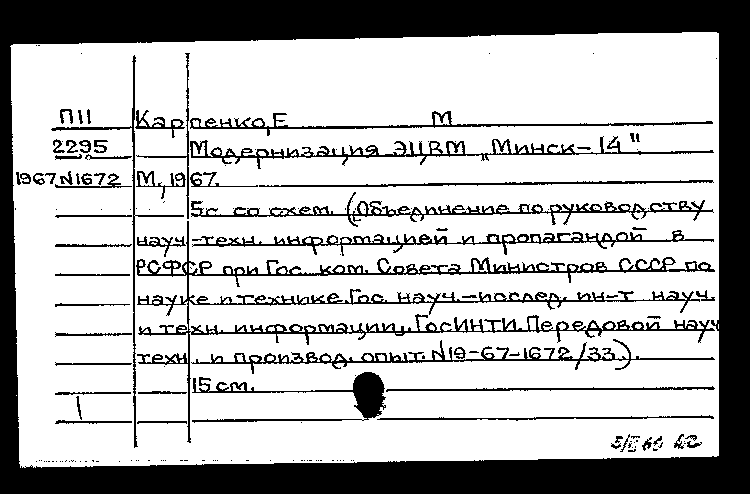 П11 Карпенко, Е М
2295 Модернизация ЭЦВМ „Минск-14".
1967 N1672 М., 1967.
5с. со схем. (Объединение по руководству
науч-техн. информацией и пропагандой в
РСФСР при Гос. ком. Совета Министров СССР по
науке и технике. Гос. науч.-послед. ин-т науч.
и техн. информации. ГосИНТИ. Передовой науч
техн. и производ. опыт. N19-67-1672/33).
15 см.